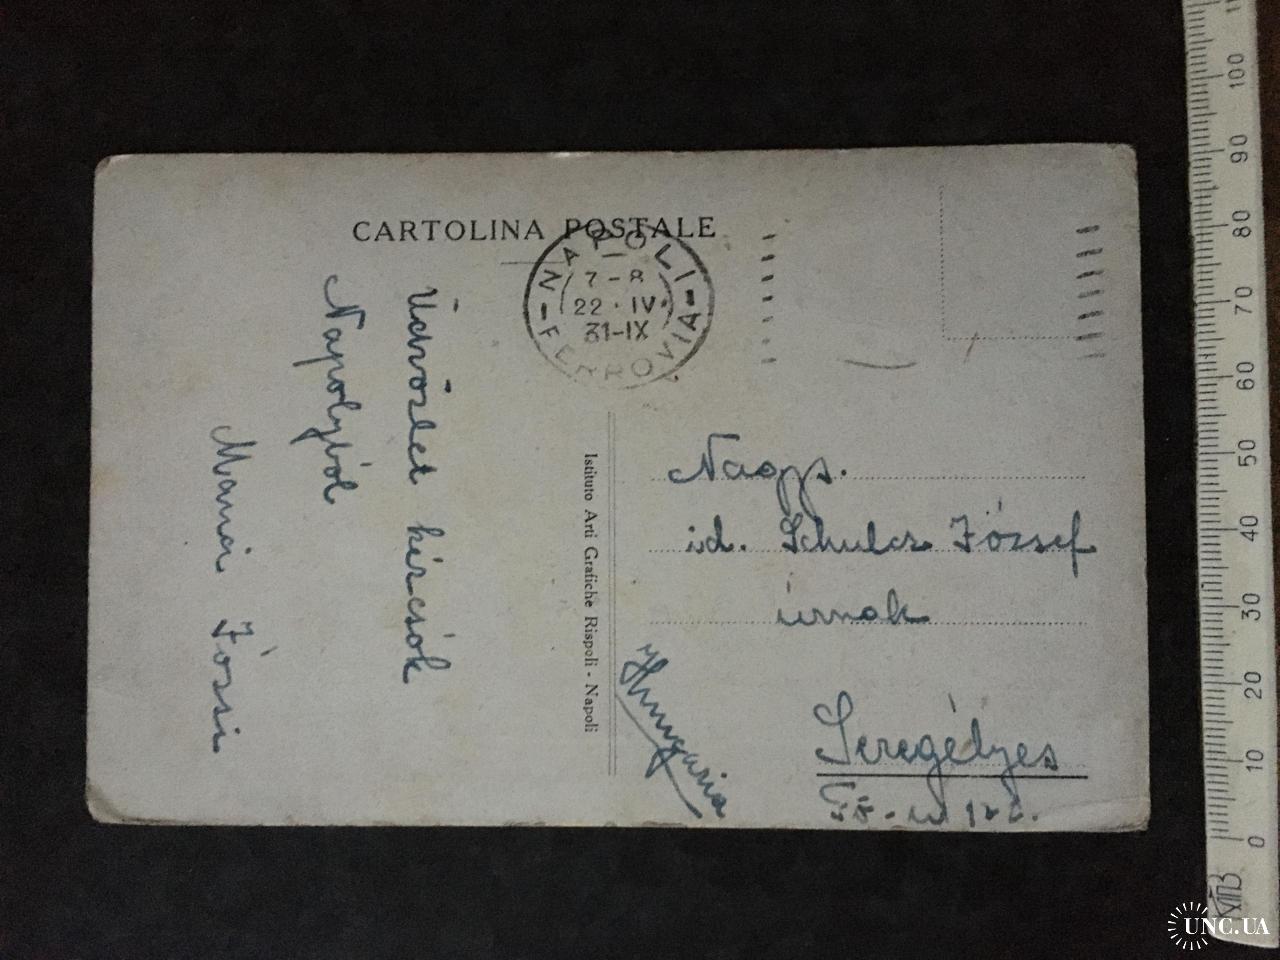 CARTOLINA POSTALE
NAPOLI
7-8
22·IV·
31-IX
FERROVIA
Üdvözlet
Nápolyból
Mamá Józsi
Istituto Arti Grafiche Rispoli - Napoli
Nagys.
id. Schulcz József
úrnak
Hungaria
Seregélyes
100
90
80
70
60
50
40
30
20
10
0
UNC.UA